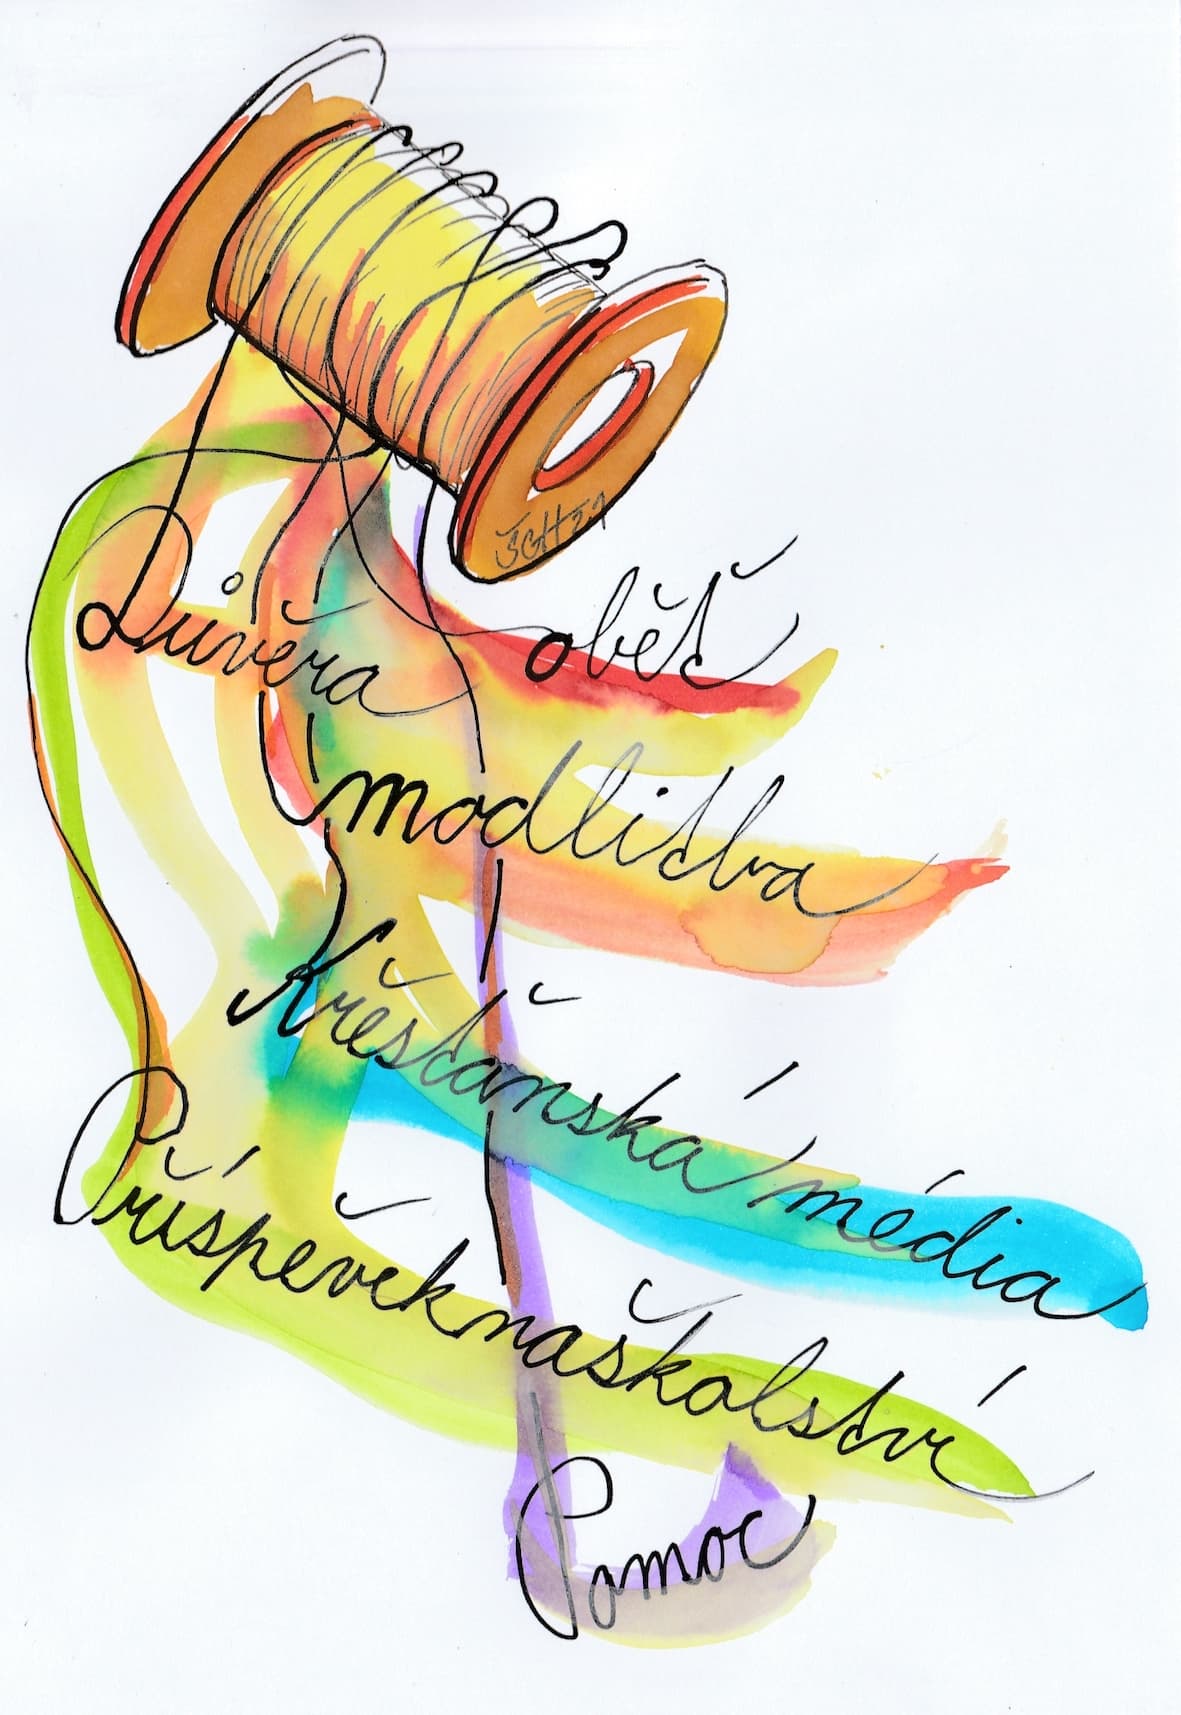 Důvěra
oběť
modlitba
Křesťanská média
Příspěvek na školství
Pomoc